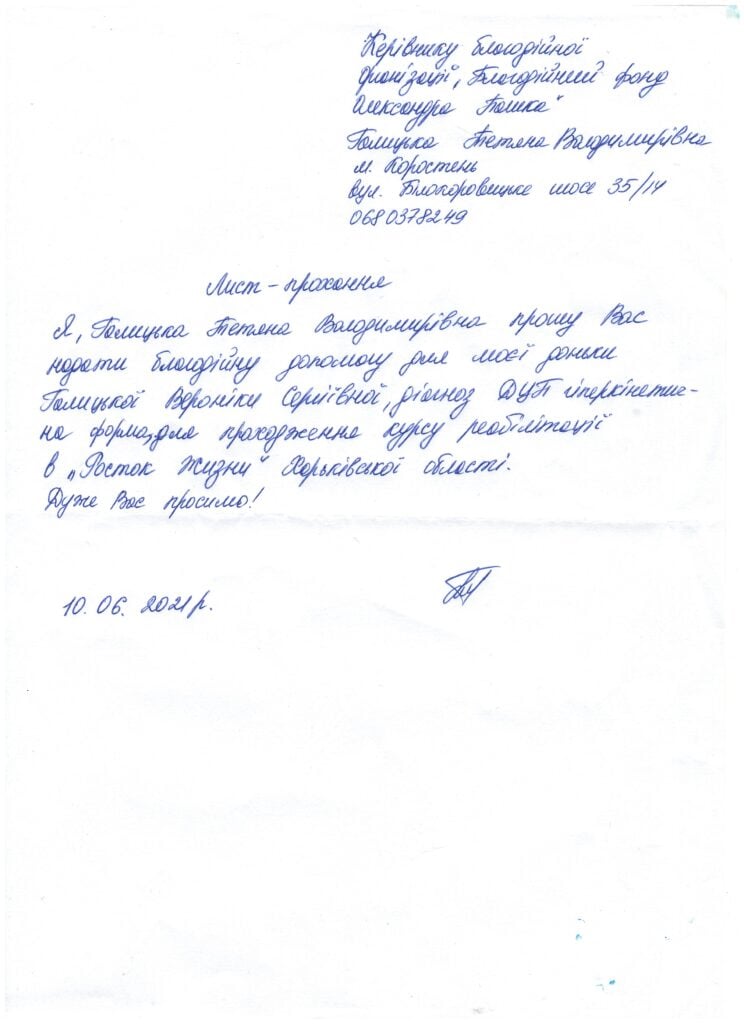 Керівнику благодійної
організації „Благодійний фонд
Олександра Пошка"
Галицька Тетяна Володимирівна
м. Коростень
вул. Білокоровицьке шосе 35/14
0680378249
Лист-прохання
Я, Галицька Тетяна Володимирівна прошу Вас
надати благодійну допомогу для моєї доньки
Галицької Вероніки Сергіївної, діагноз ДЦП гіперкінетич-
на форма, для проходження курсу реабілітації
в „Росток Жизни" Харьківської області.
Дуже Вас просимо!
10.06.2021р.